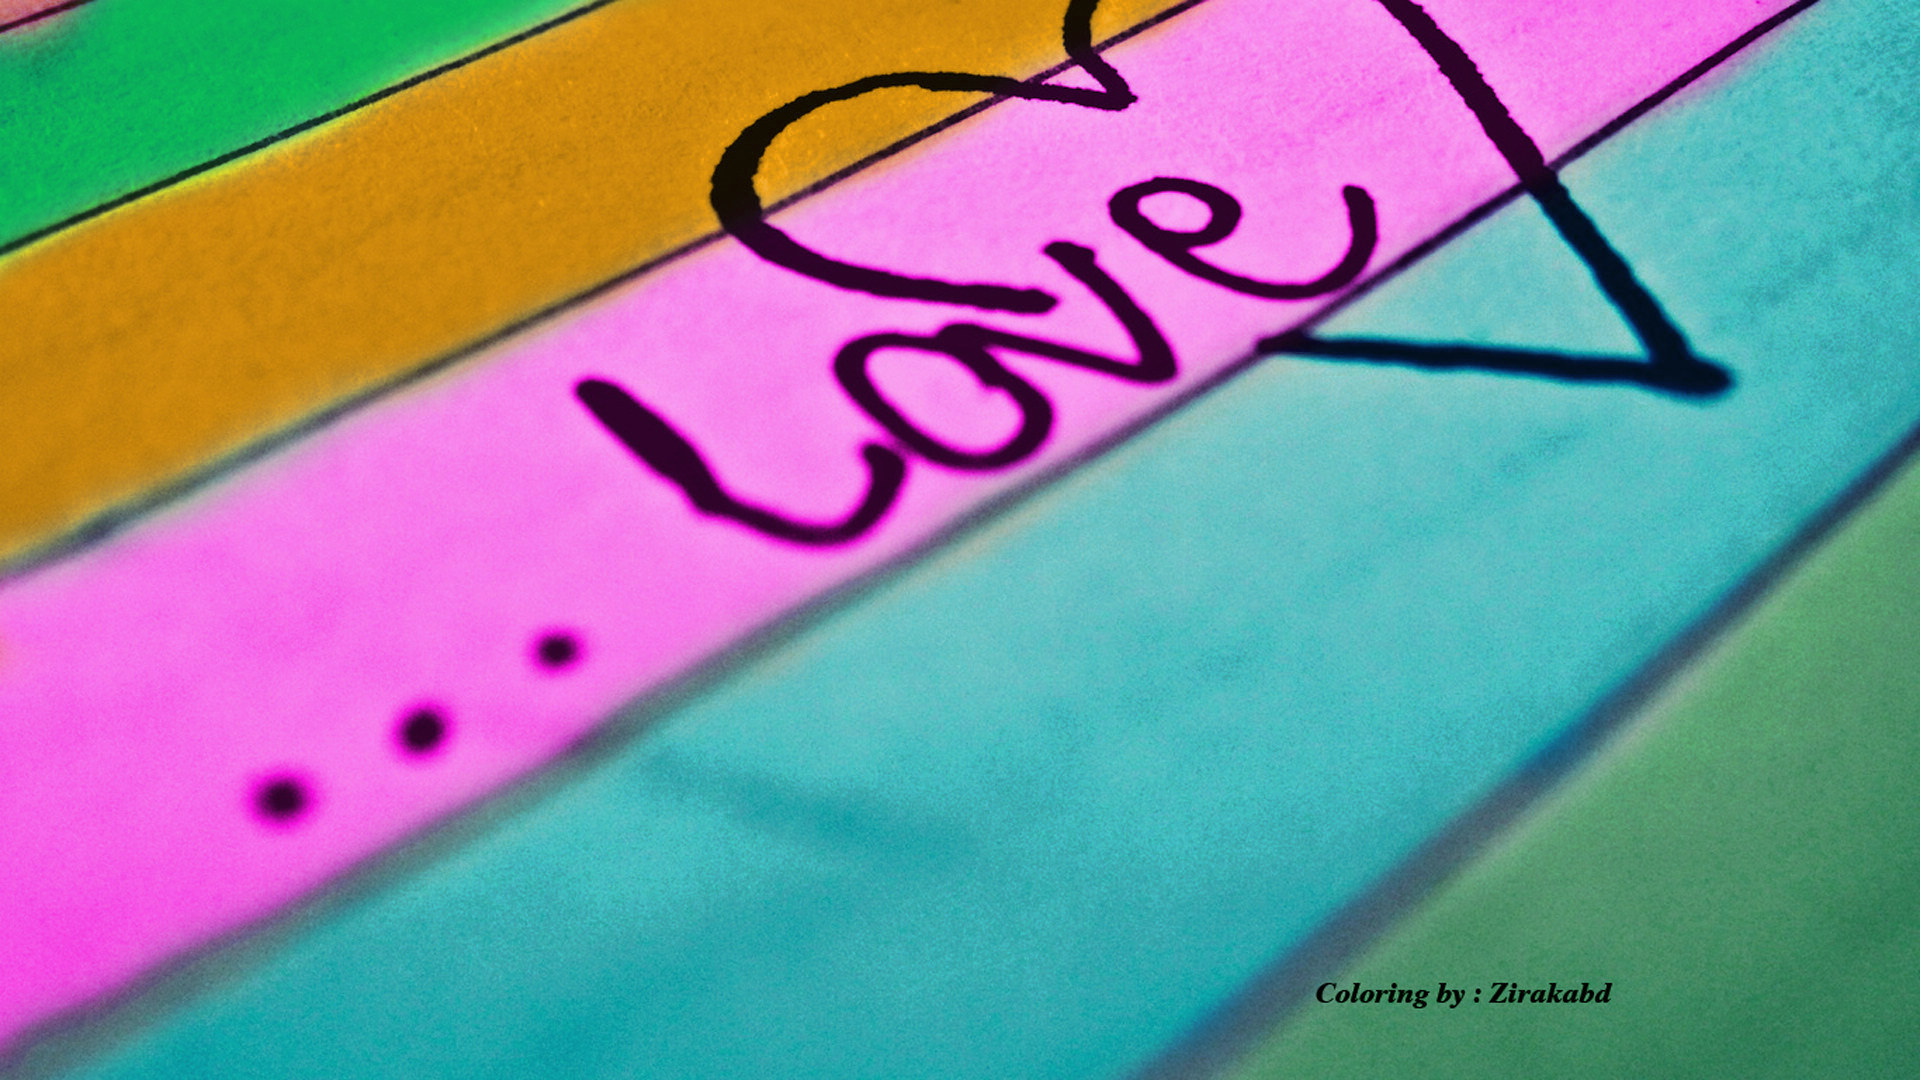 ... Love
Coloring by : Zirakabd